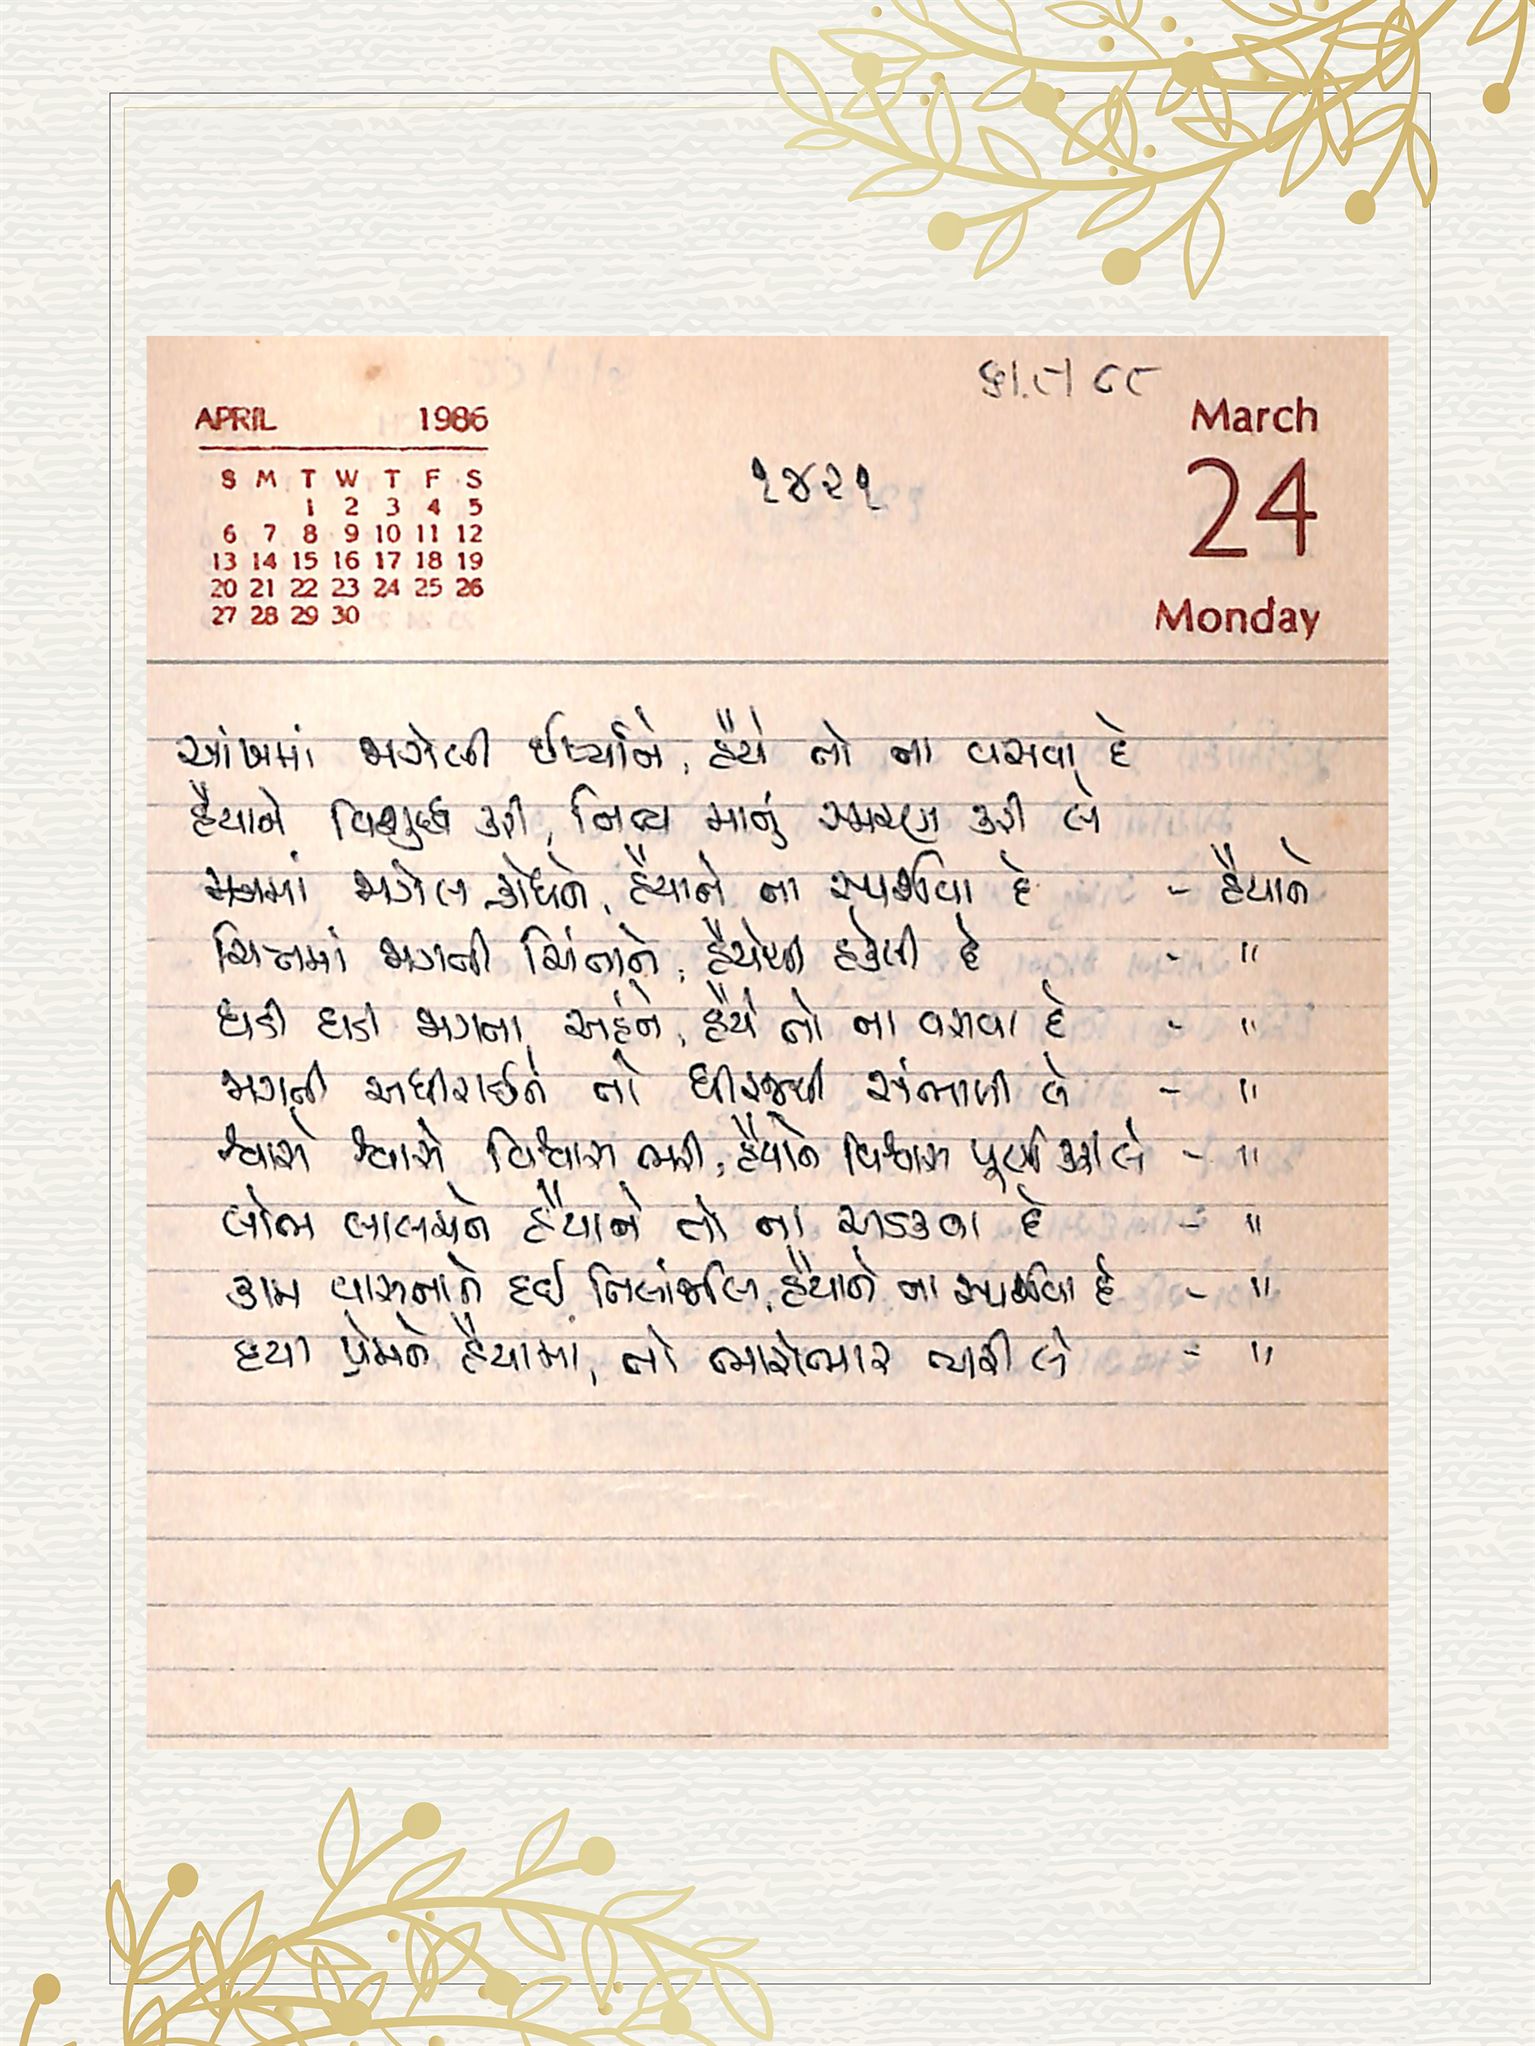 કાલ ૮૮
APRIL 1986
March
S M T W T F S
1 2 3 4 5
6 7 8 9 10 11 12
13 14 15 16 17 18 19
20 21 22 23 24 25 26
27 28 29 30
૧૪૨૧
24
Monday
આંખમાં જાગેલી ઈર્ષ્યાને, હૈયે તો ના વસવા દે
હૈયાને વિશુદ્ધ કરી, નિત્ય માનું સ્મરણ કરી લે
મનમાં જાગેલ ક્રોધને, હૈયાને ના સ્પર્શવા દે - હૈયાને
ચિત્તમાં જાગતી ચિંતાને, હૈયેથી હડસેલી દે - "
ઘડી ઘડી જાગતા અહંને, હૈયે તો ના વસવા દે - "
જાગતી અધીરાઈને તો ધીરજથી સંભાળી લે - "
શ્વાસે શ્વાસે વિશ્વાસ ભરી, હૈયાને વિશ્વાસ પૂર્ણ કરી લે - "
લોભ લાલચને હૈયાને તો ના અડકવા દે - "
કામ વાસનાને દઈ તિલાંજલિ, હૈયાને ના સ્પર્શવા દે - "
દયા પ્રેમને હૈયામાં, તો ભારોભાર ભરી લે - "